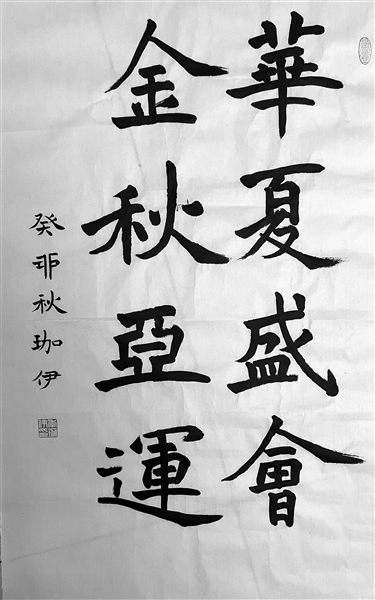 華夏盛會
金秋亞運
癸卯秋珈伊